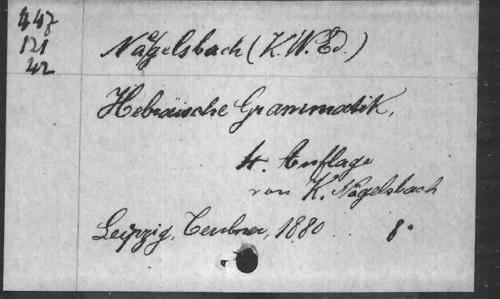 447
121
42
Nägelsbach (K. W. Ed.)
Hebräische Grammatik,
4. Auflage
von K. Nägelsbach
Leipzig, Teubner, 1880 8°